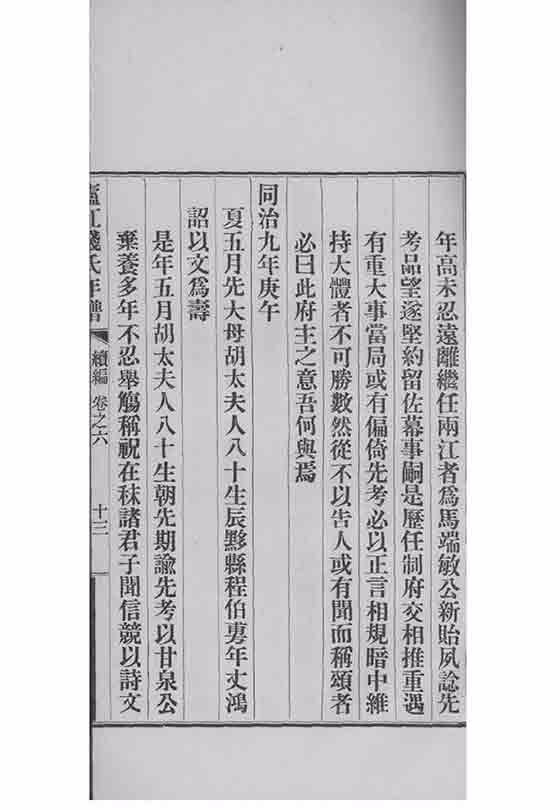 年高未忍遠離繼任兩江者爲馬端敏公新貽夙諗先
考品望遂堅約留佐幕事嗣是歷任制府交相推重遇
有重大事當局或有偏倚先考必以正言相規暗中維
持大體者不可勝數然從不以告人或有聞而稱頌者
必曰此府主之意吾何與焉
同治九年庚午
夏五月先大母胡太夫人八十生辰黟縣程伯旉年丈鴻
詔以文爲壽
是年五月胡太夫人八十生朝先期諭先考以甘泉公
棄養多年不忍舉觴稱祝在秣諸君子聞信競以詩文
廬江錢氏年譜 續編 卷之六 十三